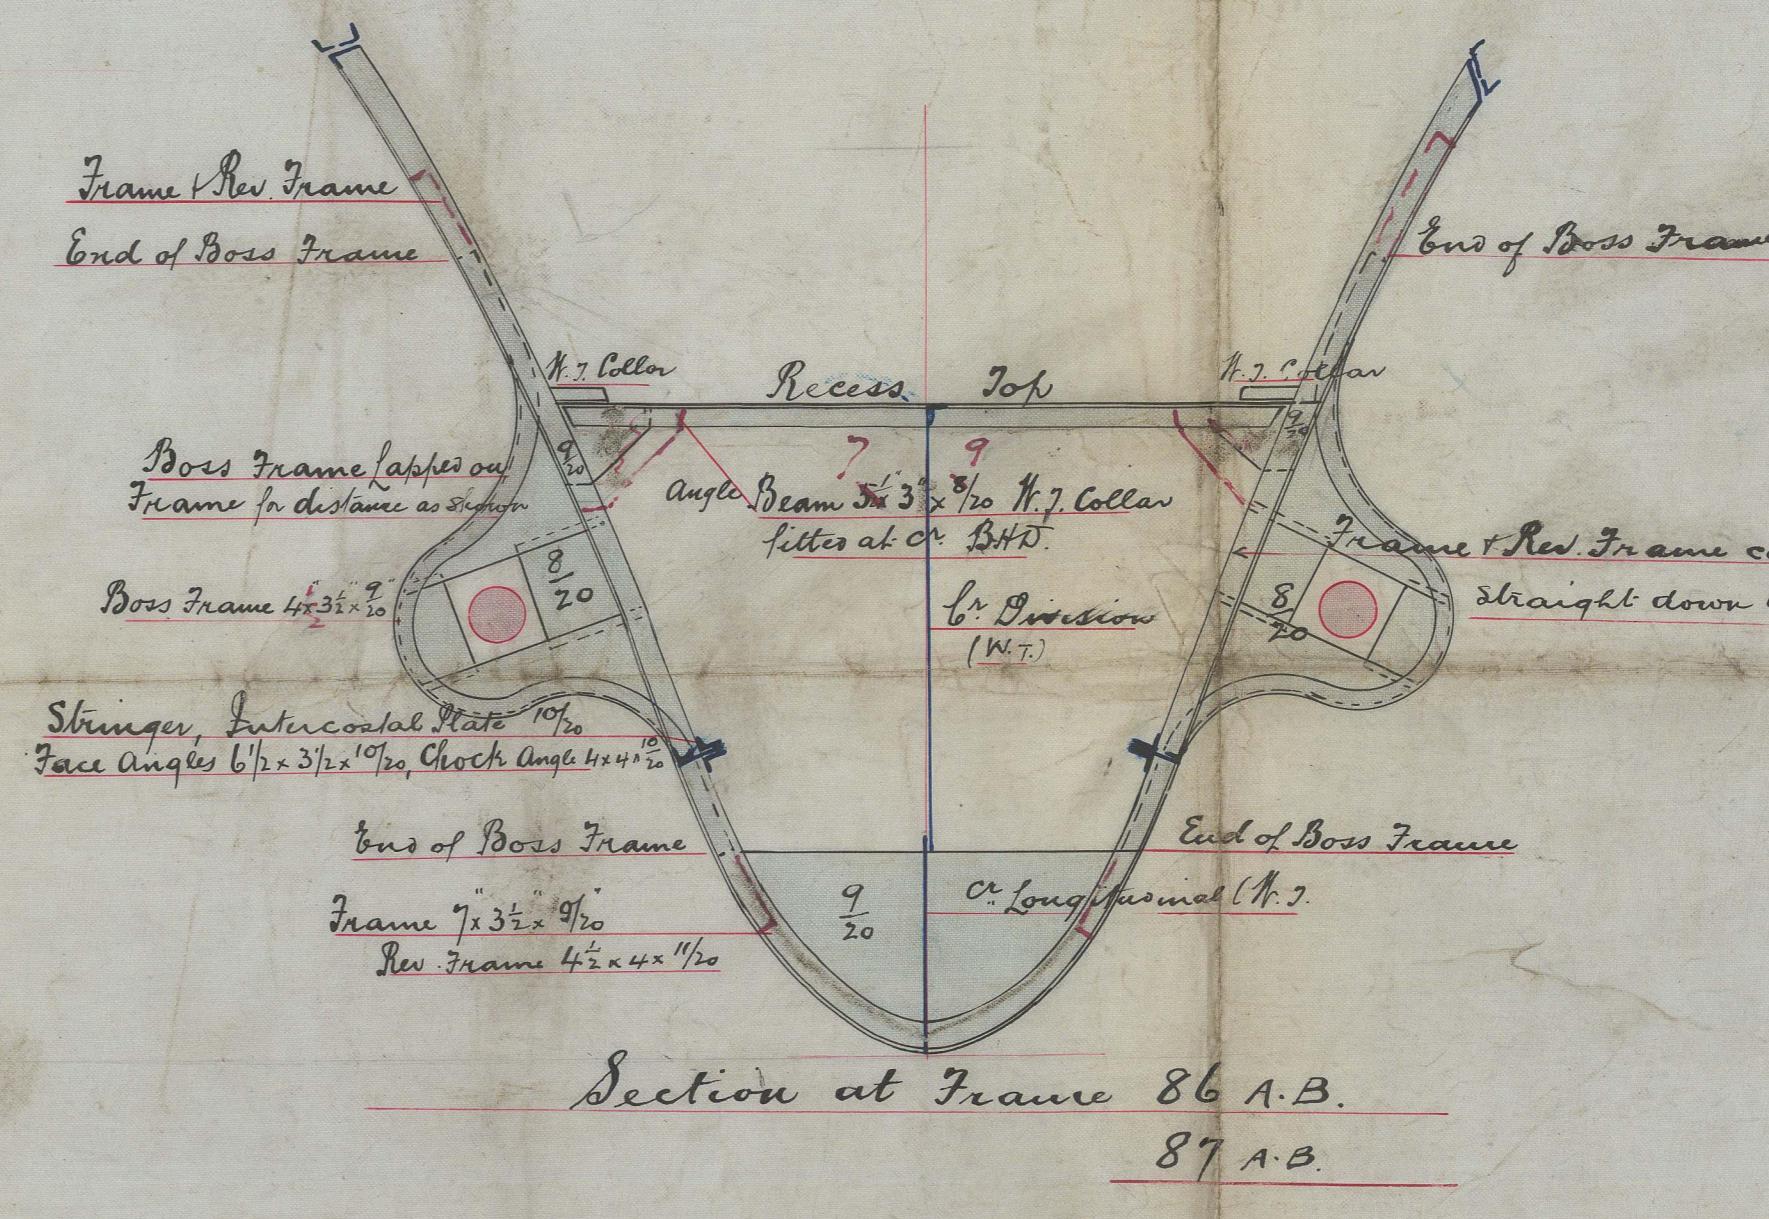 Frame + Rev. Frame
End of Boss Frame
End of Boss Frame
W.T. Collar
Recess Top
W.T. Collar
9/20
9/20
Boss Frame lapped on
Frame for distance as shown
7 9
Angle Beam 3" x 8/20 W.T. Collar
fitted at Cr. BHD.
Frame + Rev. Frame
Straight down
8/20
8/20
Boss Frame 4 x 3½" x 9/20"
Cr. Division
(W.T.)
Stringer, Intercostal Plate 10/20
Face Angles 6 1/2 x 3 1/2 x 10/20, Chock Angle 4 x 4 x 10/20
End of Boss Frame
End of Boss Frame
9/20
Cr. Longitudinal (W.T.
Frame 7" x 3½" x 9/20"
Rev. Frame 4½ x 4 x 11/20
Section at Frame 86 A.B.
87 A.B.